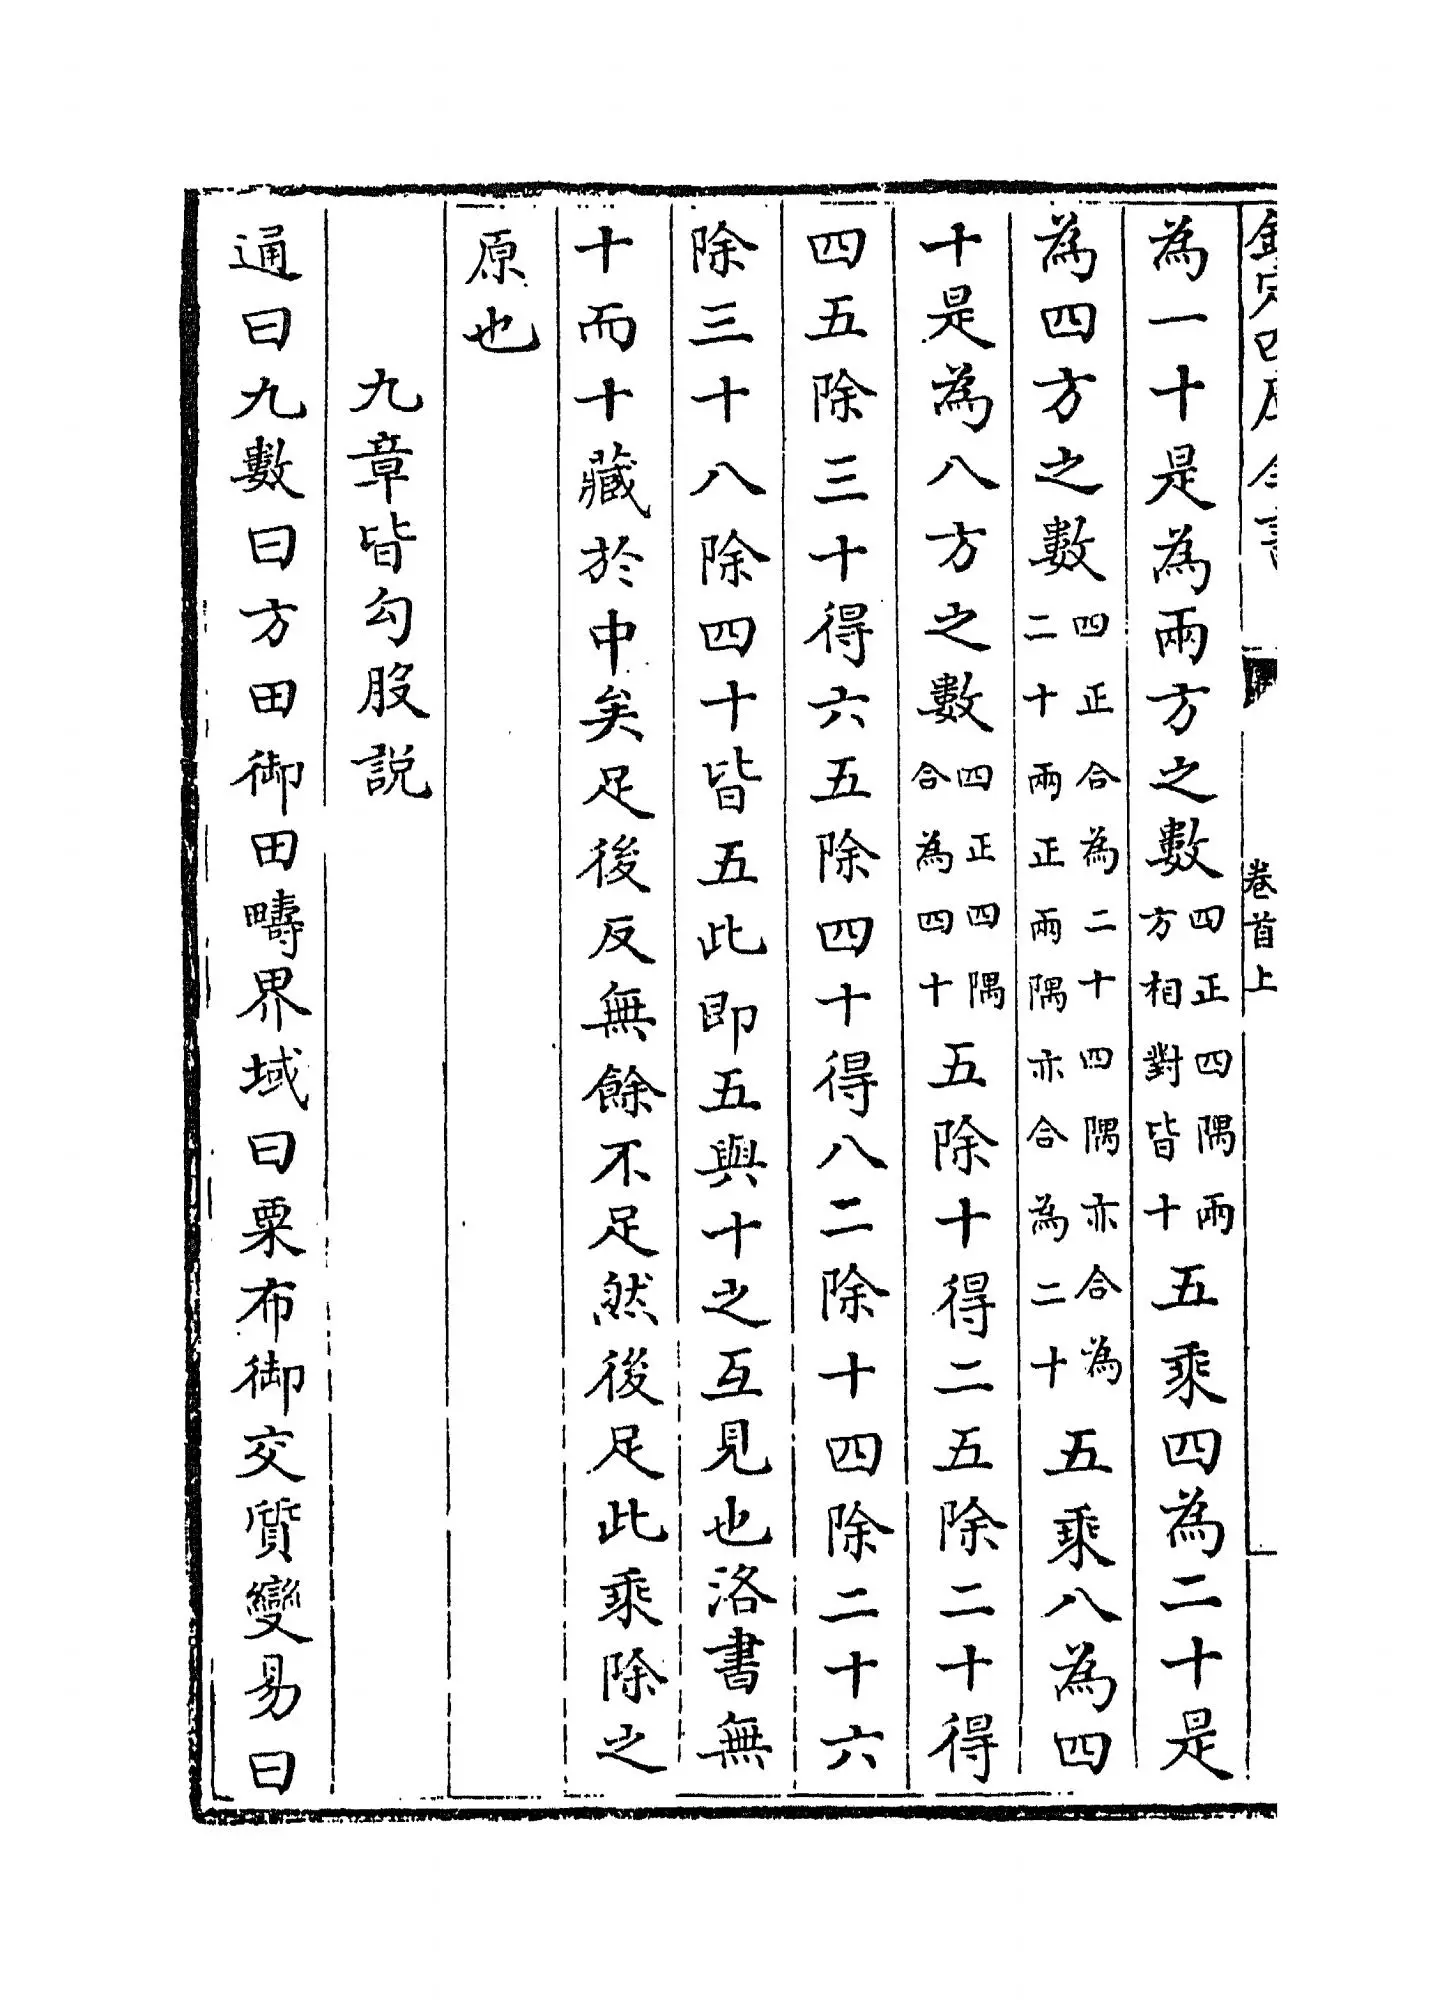 欽定四庫全書
卷首上
為一十是為兩方之數四正四隅兩方相對皆十五乘四為二十是
為四方之數四正合為二十四隅亦合為二十兩正兩隅亦合為二十五乘八為四
十是為八方之數四正四隅合為四十五除十得二五除二十得
四五除三十得六五除四十得八二除十四除二十六
除三十八除四十皆五此即五與十之互見也洛書無
十而十藏於中矣足後反無餘不足然後足此乘除之
原也
九章皆勾股説
通曰九數曰方田御田疇界域曰粟布御交質變易曰